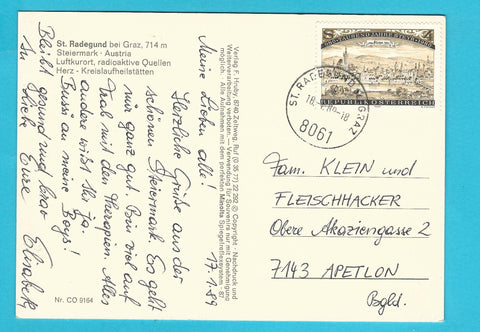 St. Radegund bei Graz, 714 m
Steiermark - Austria
Luftkurort, radioaktive Quellen
Herz - Kreislaufheilstätten
Meine Lieben alle!
Herzliche Grüße aus der
schönen Steiermark. Es geht
mir ganz gut. Bin viel auf
Trab mit den Therapien. Alles
andere wißt Ihr ja.
Bussi an meine Boys!
Bleibt gesund und brav
In Liebe Eure Elisabeth
17.1.89
Nr. CO 9164
Verlag F. Hruby, 8740 Zeltweg, Ruf (0 35 77) 22 262 © Copyright - Nachdruck und
Weiterverarbeitung verboten. - Verwendung für Souvenirs nur mit Genehmigung
möglich. Alle Aufnahmen mit dem perfekten Minolta Spiegelreflexsystem - 87
TAUSEND JAHRE STEYR
REPUBLIK ÖSTERREICH
ST. RADEGUND B. GRAZ
8061
Fam. KLEIN und
FLEISCHHACKER
Obere Akaziengasse 2
7143 APETLON
Bgld.